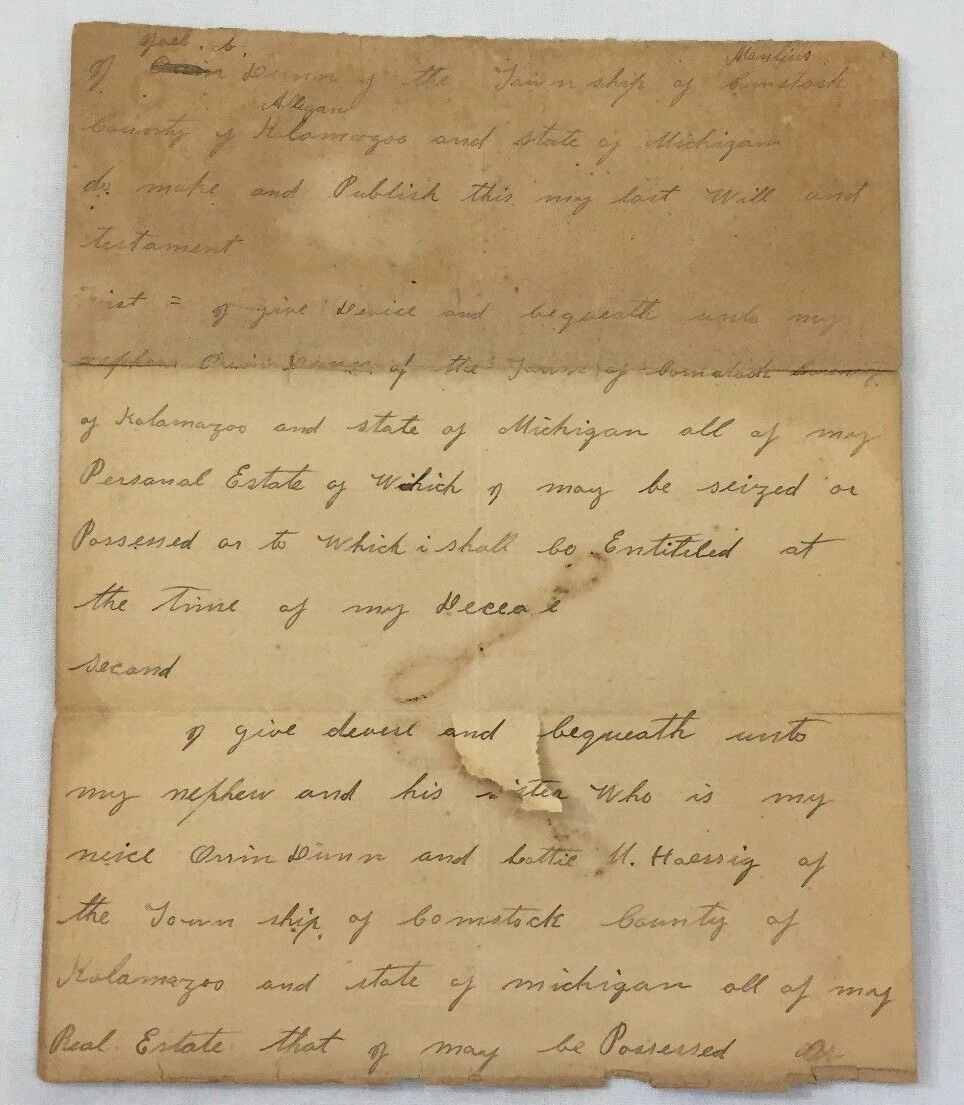 Joel. A. Manlius
I Orrin Dunn of the Town ship of Comstock
Allegan
County of Kalamazoo and state of Michigan
do make and Publish this my last Will and
testament
First = I give Devise and bequeath unto my
nephew Orrin Dunn of the Town of Comstock County
of Kalamazoo and state of Michigan all of my
Personal Estate of Which I may be seized or
Possessed or to Which i shall be Entitled at
the Time of my Decease
second
I give devise and bequeath unto
my nephew and his sister Who is my
neice Orrin Dunn and Cottie M. Haessig of
the Town ship of Comstock County of
Kalamazoo and state of michigan all of my
Real Estate that I may be Possessed or